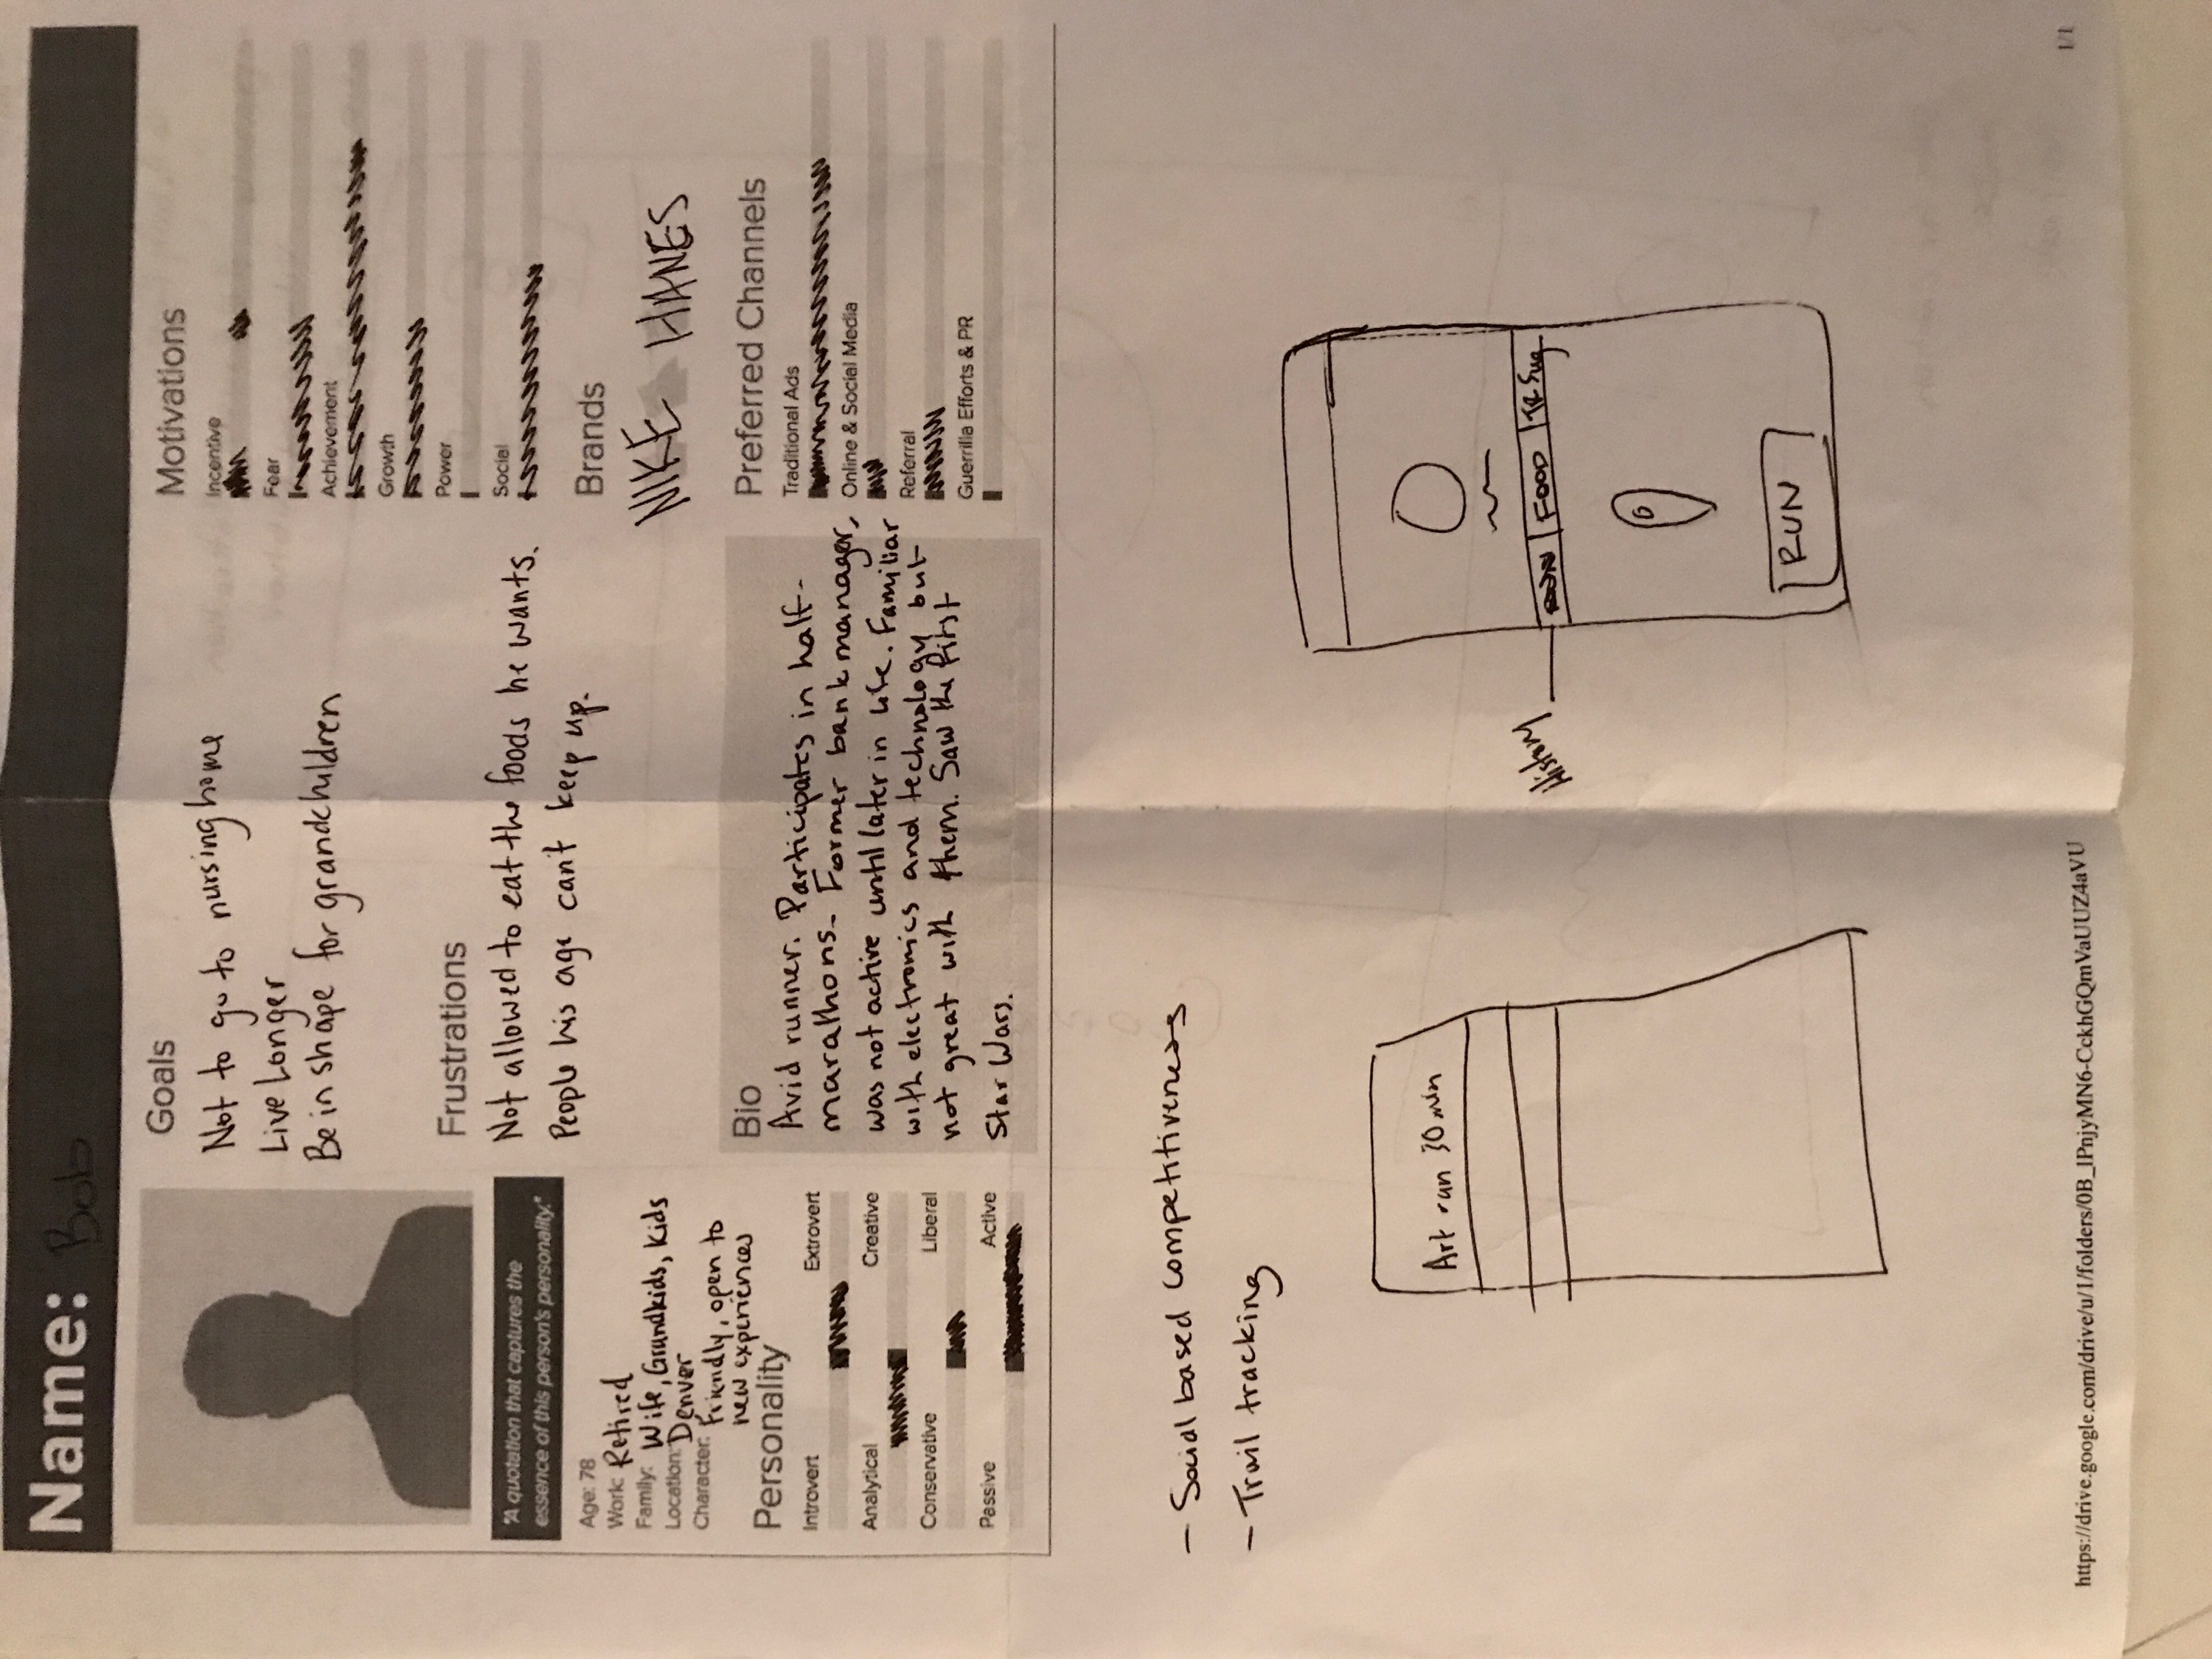 Name: Bob
"A quotation that captures the
essence of this person's personality."
Age: 78
Work: Retired
Family: Wife, Grandkids, kids
Location: Denver
Character: Friendly, open to
new experiences
Personality
Introvert Extrovert
Analytical Creative
Conservative Liberal
Passive Active
Goals
Not to go to nursing home
Live Longer
Be in shape for grandchildren
Frustrations
Not allowed to eat the foods he wants.
People his age can't keep up.
Bio
Avid runner. Participates in half-
marathons. Former bank manager,
was not active until later in life. Familiar
with electronics and technology but
not great with them. Saw the first
Star Wars.
Motivations
Incentive
Fear
Achievement
Growth
Power
Social
Brands
NIKE HANES
Preferred Channels
Traditional Ads
Online & Social Media
Referral
Guerrilla Efforts & PR
- Social based competitiveness
- Trail tracking
Art ran 30 min
History
RUN FOOD
RUN
https://drive.google.com/drive/u/1/folders/0B_lPnjyMN6-CckhGQmVaUUZ4aVU
1/1